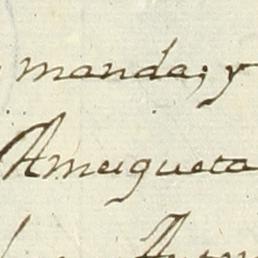 manda; y
Ameigueta